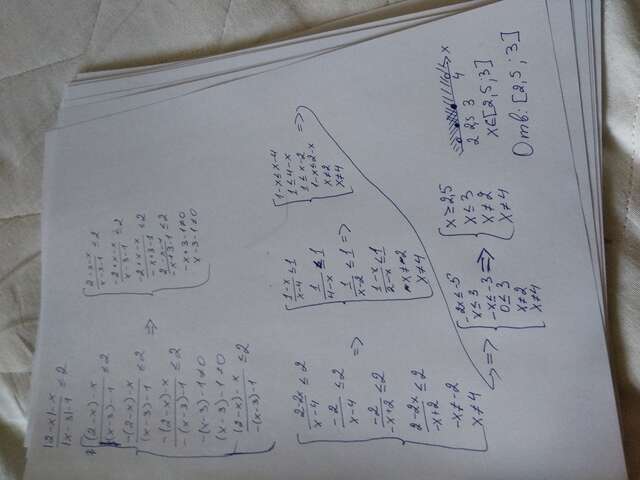 |2-x|-x / |x-3|-1 ≤ 2
(2-x)-x / (x-3)-1 ≤ 2
-(2-x)-x / (x-3)-1 ≤ 2
-(2-x)-x / -(x-3)-1 ≤ 2
-(x-3)-1≠0
(x-3)-1≠0
(2-x)-x / -(x-3)-1 ≤ 2
=>
2-x-x / x-3-1 ≤ 2
-2+x-x / x-3-1 ≤ 2
-2+x-x / -x+3-1 ≤ 2
2-x-x / -x+3-1 ≤ 2
-x+3-1≠0
x-3-1≠0
2-2x / x-4 ≤ 2
-2 / x-4 ≤ 2
-2 / -x+2 ≤ 2
2-2x / -x+2 ≤ 2
-x≠-2
x≠4
=>
1-x / x-4 ≤ 1
1 / 4-x ≤ 1
1 / x-2 ≤ 1
1-x / 2-x ≤ 1
x≠2
x≠4
=>
1-x≤x-4
1≤4-x
1≤x-2
1-x≤2-x
x≠2
x≠4
=>
=>
-2x≤-5
x≤3
-x≤-3
0≤3
x≠2
x≠4
=>
x≥2,5
x≤3
x≠2
x≠4
2 2,5 3 4 x
x∈[2,5;3]
Отв: [2,5;3]